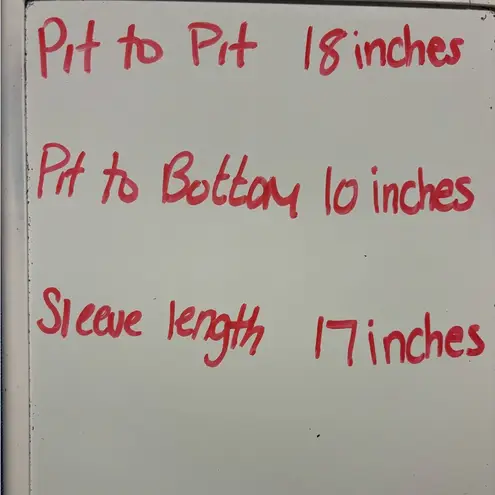 Pit to Pit 18 inches
Pit to Bottom 10 inches
Sleeve length 17 inches